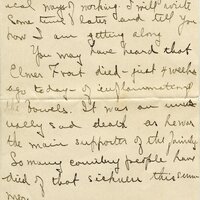 ical ways of working. I will write
Some time later and tell you
how I am getting along
You may have heard that
Elmer Frost died - just 4 weeks
ago today - of inflammation of
the bowels. It was an unus
ually sad death as he was
the main supporter of the family
So many country people have
died of that sickness this sum
mer.